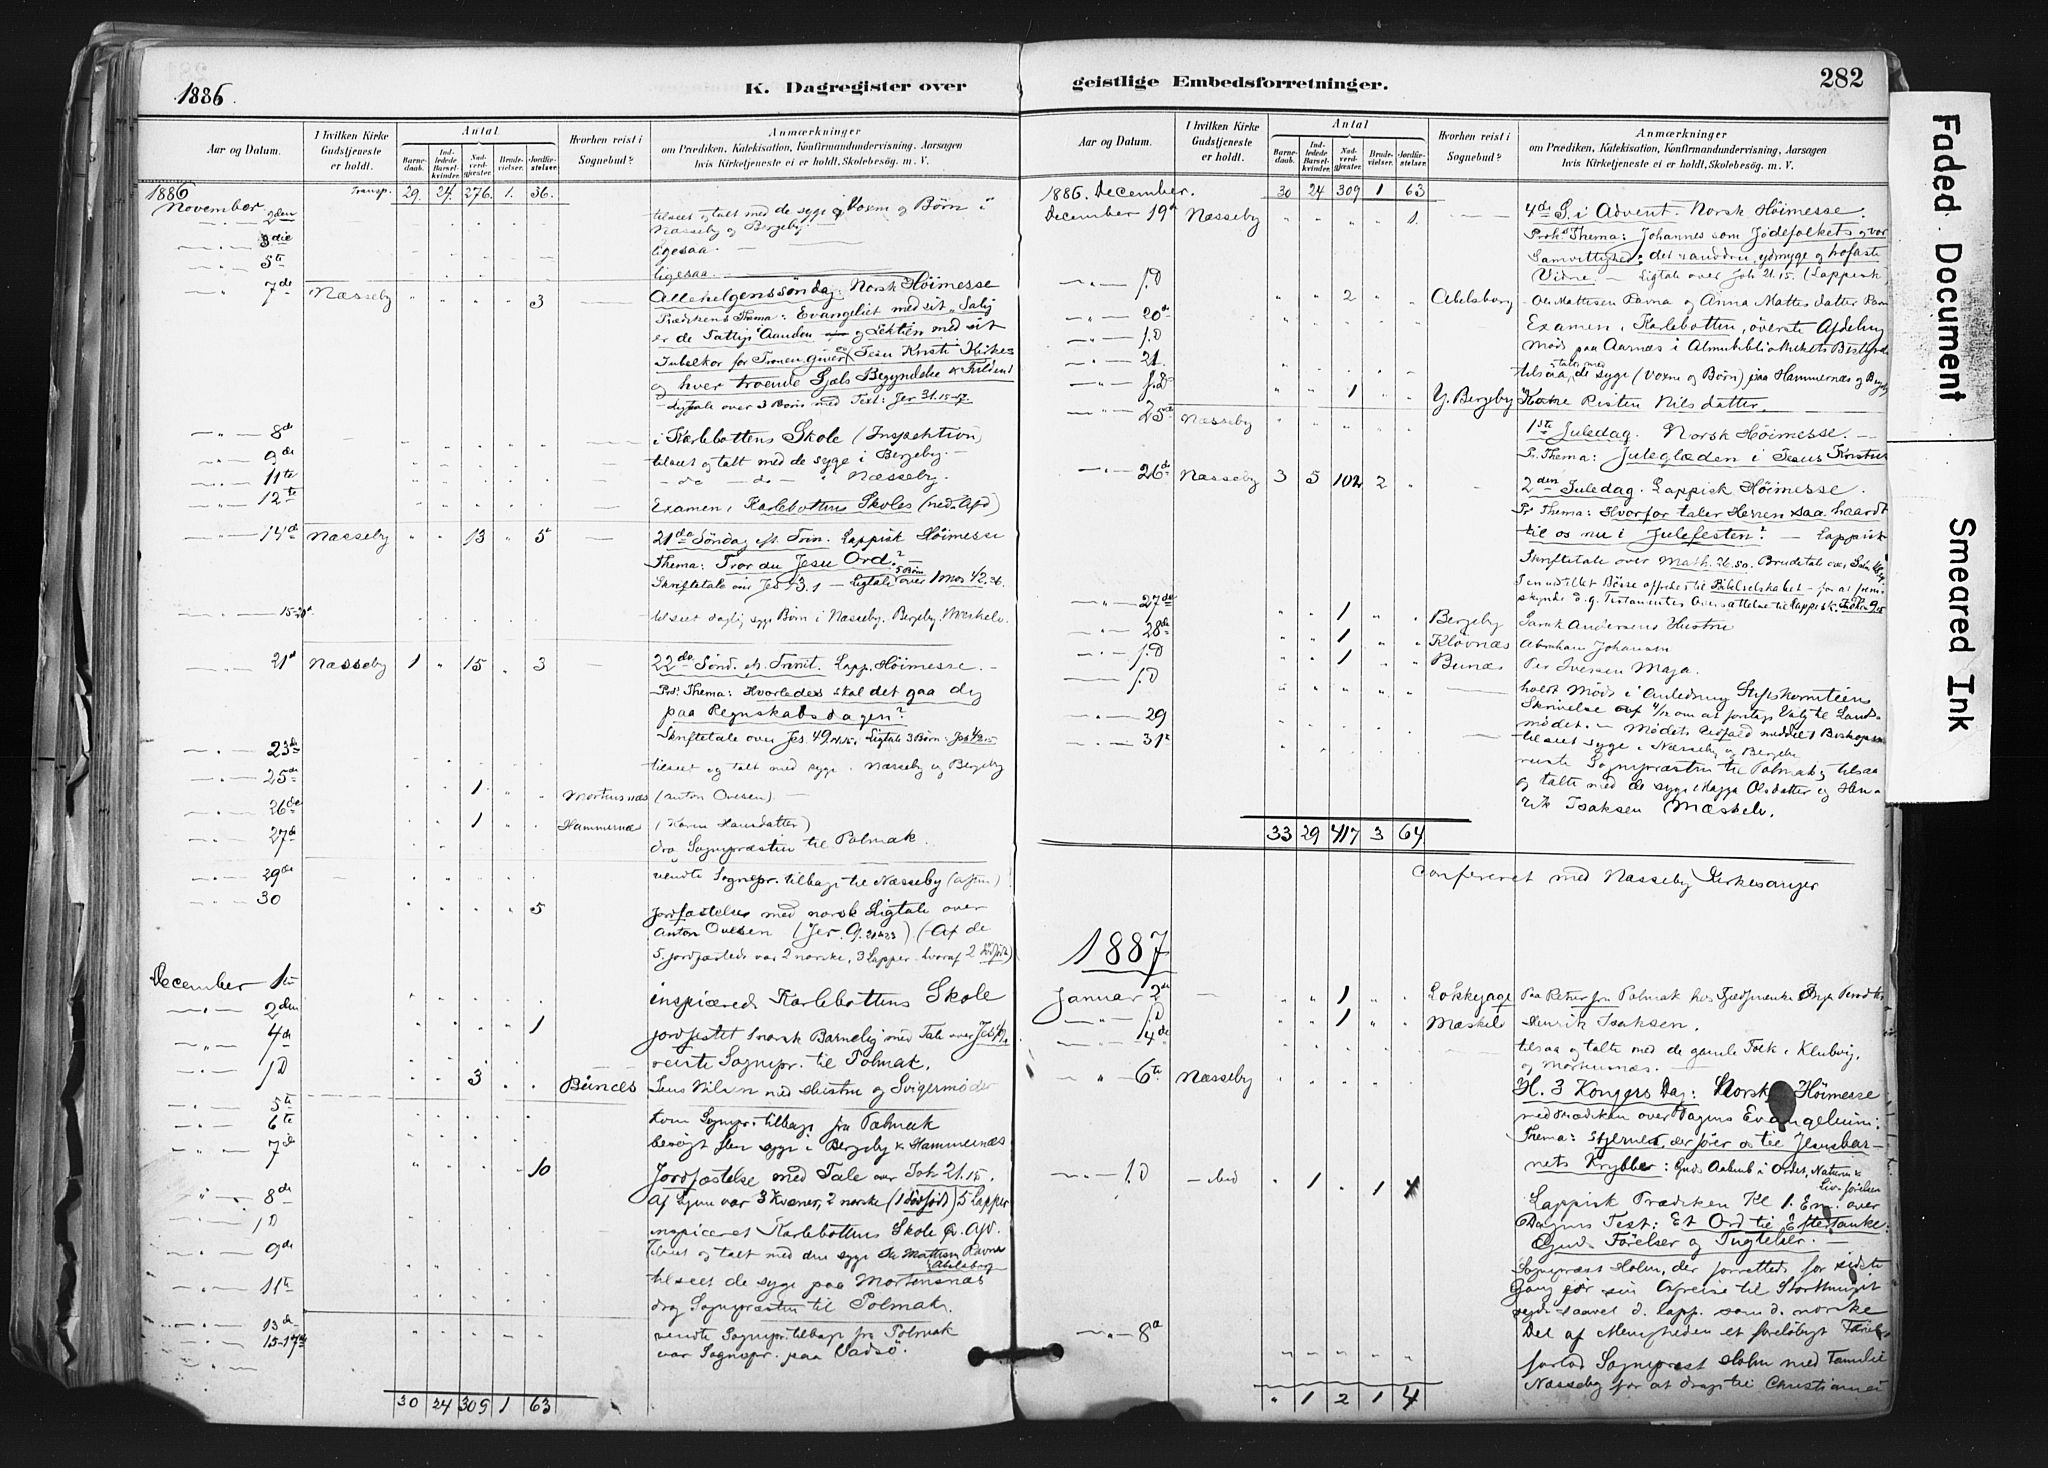 1886.
K. Dagregister over
Aar og Datum.
I hvilken Kirke Gudstjeneste er holdt.
Antal
Barne-daab.
Ind-ledede Barsel-kvinder.
Nad-verd-gjester.
Brude-vielser.
Jordfæ-stelser.
Hvorhen reist i Sognebud?
Anmærkninger
om Prædiken, Katekisation, Konfirmandundervisning. Aarsagen
hvis Kirketjeneste ei er holdt. Skolebesøg. m. V.
1886 Transp. 29. 24. 276. 1. 36.
November 2den tilseet og talt med de syge Voxne og Børn i
Næsseby og Bergeby.
3die ligesaa
5te ligesaa.
7de Næsseby 3 Allehelgenssøndag. Norsk Høimesse
Prædikens Thema: Evangeliet med sit "Salig
er de Fattige i Aanden og Lektien med sit
Jubelkor for Tronen giver Jesu Kristi Kirkes
og hver troende Sjæls Begyndelse &
- Ligtale over 3 Børn med Text: Jer 31.15-17.
8de i Karlebottens Skole (Inspektion)
9de tilseet og talt med de syge i Bergeby.
11te - do - do - i Næsseby.
12te Examen i Karlebottens Skoles (ned. Afd)
14de Næsseby 13 5 21de Søndag eft. Trin. Lappisk Høimesse
Thema: Tror du Jesu Ord?
Skriftetale over Jes 43.1 - Ligtale over 5 Børn 1 Mos 42.36.
15-20de tilseet daglig syge Børn i Næsseby, Bergeby, Meskelv.
21de Næsseby 1 15 3 22de Sønd. eft. Trinit. Lapp. Høimesse.
Thema: Hvorledes skal det gaa dig
paa Regnskabsdagen?
Skriftetale over Jes. 49 Ligtale 3 Børn:
23de tilseet og talt med syge i Næsseby og Bergeby
25de 1 Mortensnæs (Anton Ovesen)
26de 1 Hammernæs (Karen Hansdatter)
27de drog Sognepræsten til Polmak.
29de vendte Sognepr. tilbage til Næsseby
30 5 Jordfæstelse med norsk Ligtale over
Anton Ovesen (Jer. 9. ) (-Af de
5 jordfæstede var 2 norske, 3 Lapper - hvoraf 2
December 1ste inspicered Karlebottens Skole
2den 1 jordfæstet norsk Barnelig med Tale over
4de reiste Sognepr. til Polmak.
J.D 3 Bunæs Jens Nilsen med Hustru og Svigermoder
5te
6te kom Sognepr. tilbage fra Polmak
7de besøgt flere syge i Bergeby & Hammernæs
10 Jordfæstelse med Tale over Joh 21.15.
8de Af Ligene var 3 Kvæner, 2 norske (1 dødfød) 5 Lapper
J.D inspiceret Karlebottens Skole Øv. Afd.
9de Tilseet og talt med den syge Ole Mathisen Ravna
i Abelsborg
11te tilseet de syge paa Mortensnæs
drog Sognepræsten til Polmak.
13de vendte Sognepr. tilbage fra Polmak
15-17de var Sognepr. paa Vadsø.
30 24 309 1 63
geistlige Embedsforretninger.
282
Aar og Datum.
I hvilken Kirke Gudstjeneste er holdt.
Antal
Barne-daab.
Ind-ledede Barsel-kvinder.
Nad-verd-gjester.
Brude-vielser.
Jordfæ-stelser.
Hvorhen reist i Sognebud?
Anmærkninger
om Prædiken, Katekisation, Konfirmandundervisning, Aarsagen
hvis Kirketjeneste ei er holdt, Skolebesøg. m. V.
1886. December. 30 24 309 1 63
December 19de Næsseby 1. 4de S. i Advent. Norsk Høimesse.
Thema: Johannes som Jødefolkets og vor
Samvittigheds: det sanddru, ydmyge og trofaste
Vidne - Ligtale over Joh 21.15 (Lappisk)
J.D 2 Abelsborg Ole Mathisen Ravna og Anna Mathesdatter
20de Examen i Karlebotten, øverste Afdeling
J.D Møde paa Aarnæs i Almuebibliothekets Bestyrelse
21. tilsaa, talte med de syge (Voxne og Børn) paa Hammernæs og Bergeby
J.D 1 Y. Bergeby Risten Nilsdatter.
25de Næsseby 1ste Juledag. Norsk Høimesse.
Pr. Thema: Juleglæden i Jesus Kristus
26de Næsseby 3 5 102 2 2den Juledag. Lappisk Høimesse.
Pr. Thema: Hvorfor taler Herren saa haardt
til os nu i Julefesten? - Lappisk
Skriftetale over Math. Brudetale over
I en udstillet Bøsse offredes til Bibelselskabet - for at frem-
skynde d. g. Testamentes Oversættelse til Lappisk.
27de 1 Bergeby Sarak Andersens Hustru
28de 1 Klovnæs Abraham Johansen
J.D 1 Bunæs Per Iversen Maja.
J.D holdt Møde i Anledning Stiftskomiteens
Skrivelse af 4/12 om at foretage Valg til Lands-
29 mødet. - Mødets Udfald meddelt Biskopen
31te tilseet syge i Næsseby og Bergeby
reiste Sognepræsten til Polmak, tilsaa
og talte med de syge Magga Olsdatter og Hen-
rik Isaksen Mæskelv.
33 29 417 3 64
Confereret med Næsseby Kirkesanger
1887
Januar 2den 1 Lokkejage Paa Retur fra Polmak hos
J.D 1 Mæskelv Henrik Isaksen.
4de tilsaa og talte med de gamle Folk i Klubvig,
og Mortensnæs.
6te Næsseby H. 3 Kongers Dag: Norsk Høimesse
med Prædiken over Dagens Evangelium:
Thema: Stjernen, der fører os til Jesusbar-
nets Krybbe: Guds Aabenb. i Ordet, Naturen &
Livs førelsen
J.D ibid 1 1 4 Lappisk Prædiken Kl 1. Em. over
Dagens Text: Et Ord til Eftertanke:
Guds Førelser og Tugtelser.
Sognepræst Holm, der forrettede for sidste
Gang før sin Afreise til Storthinget
d. lapp. som d. norske
Del af Menigheden et foreløbigt
8de forlod Sognepræst Holm med Familie
Næsseby for at drage til Christiania
1 2 1 4
Faded Document
Smeared Ink